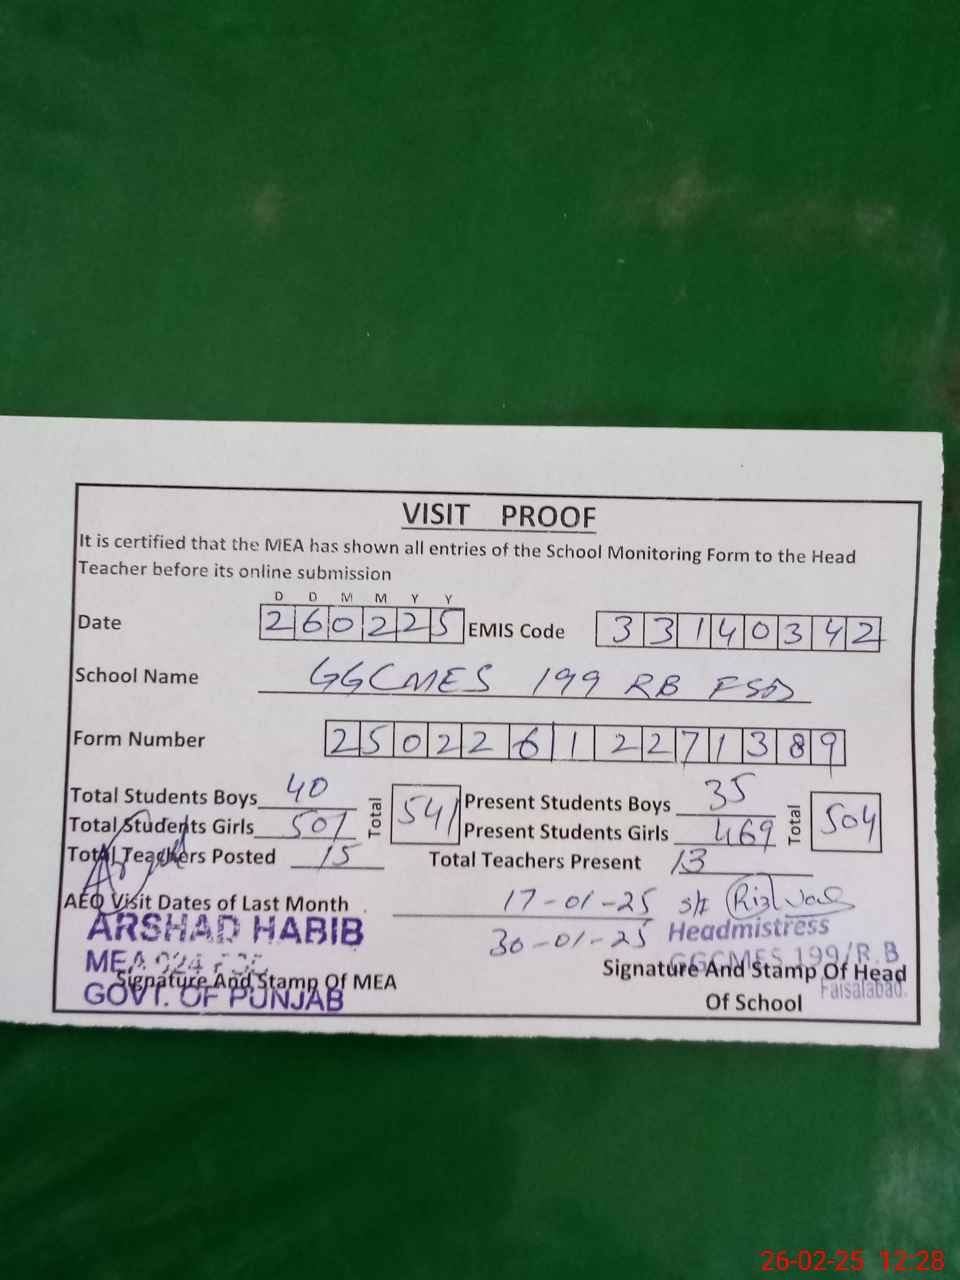 VISIT PROOF
It is certified that the MEA has shown all entries of the School Monitoring Form to the Head
Teacher before its online submission
D D M M Y Y
Date 260225 EMIS Code 33140342
School Name GGCMES 199 RB FSD
Form Number 25022612271389
Total Students Boys 40 Total 541 Present Students Boys 35 Total 504
Total Students Girls 501 Present Students Girls 469
Total Teachers Posted 15 Total Teachers Present 13
AEO Visit Dates of Last Month 17-01-25
30-01-25
ARSHAD HABIB
MEA
GOVT. OF PUNJAB
Signature And Stamp Of MEA
Headmistress
GGCMES 199/R.B
Faisalabad.
Signature And Stamp Of Head
Of School
26-02-25 12:28